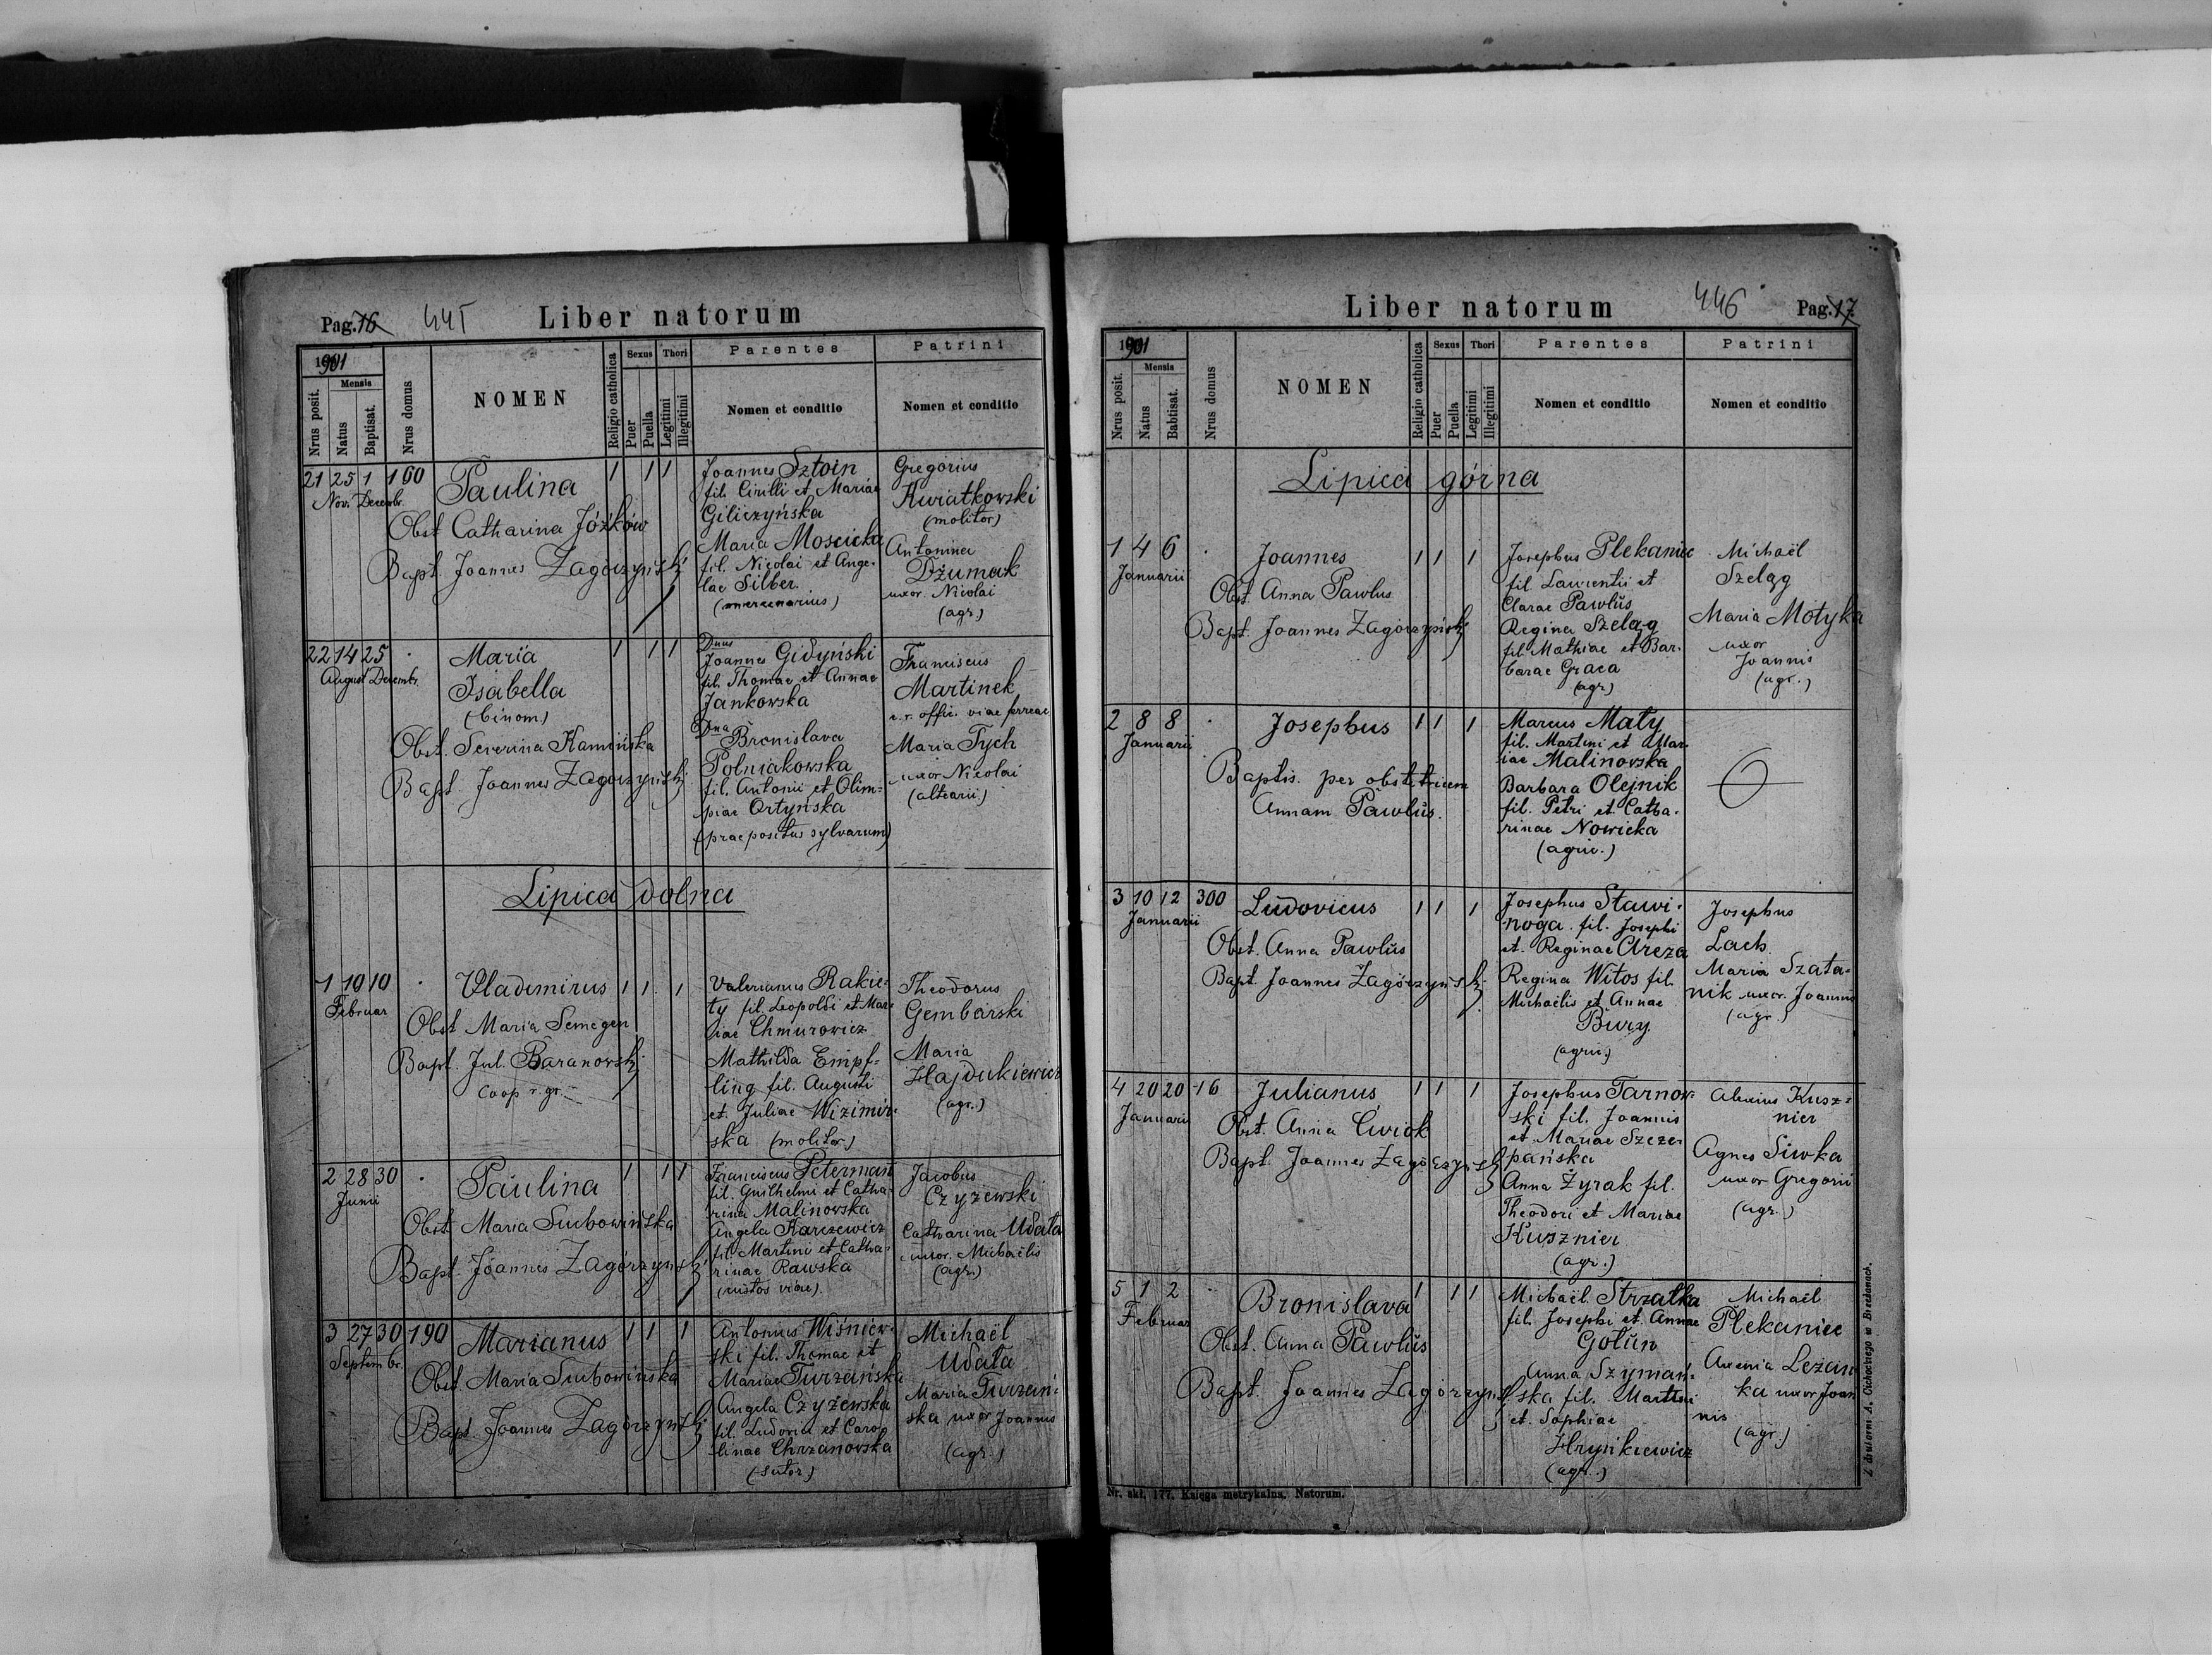 Pag. 16 445 Liber natorum
1901
Nrus posit.
Mensis
Natus
Baptisat.
Nrus domus
NOMEN
Religio catholica
Sexus
Puer
Puella
Thori
Legitimi
Illegitimi
Parentes
Nomen et conditio
Patrini
Nomen et conditio
21 25 1 160
Nov. Decembr.
Paulina
Obst Catharina Józków
Bapt. Joannes Zagórzyński
1 1 1
Joannes Sztoin
fil. Cirilli et Mariae
Giliczyńska
Maria Moscicka
fil. Nicolai et Ange-
lae Silber.
(mercenarius)
Gregorius
Kwiatkowski
(molitor)
Antonina
Dżumak
uxor. Nicolai
(agr.)
22 14 25 .
August Decembr.
Maria
Isabella
(binom.)
Obst. Severina Kamińska
Bapt. Joannes Zagórzyński
1 1 1
Dnus
Joannes Gidyński
fil. Thomae et Annae
Jankowska
Dna
Bronislava
Polniakowska
fil. Antonii et Olim-
piae Ortyńska
(praepositus sylvarum)
Franciscus
Martinek
c. r. offic. viae ferreae
Maria Tych
uxor Nicolai
(altearii.)
Lipica dolna
1 10 10 .
Februar
Vladimirus
Obst Maria Semegen
Bapt. Jul. Baranowski
Coop r. gr.
1 1 1
Valerianus Rakie-
ty fil. Leopoldi et Mar-
iae Chmurowicz
Mathilda Empf-
ling fil. Augusti
et Juliae Wizimir-
ska (molitor)
Theodorus
Gembarski
Maria
Hajdukiewicz
(agr.)
2 28 30 .
Junii
Paulina
Obst. Maria Suchowińska
Bapt. Joannes Zagórzyński
1 1 1
Franciscus Petermann
fil. Guilhelmi et Catha-
rina Malinowska
Angela Karczewicz
fil. Martini et Catha-
rinae Rawska
(custos viae)
Jacobus
Czyżewski
Catharina Udata
uxor. Michaelis
(agr.)
3 27 30 190
Septembr.
Marianus
Obst. Maria Suchowińska
Bapt. Joannes Zagórzyński
1 1 1
Antonius Wiśniew-
ski fil. Thomae et
Mariae Turzańska
Angela Czyżewska
fil. Ludovici et Caro-
linae Chrzanowska
(sutor)
Michaël
Udata
Maria Turzań-
ska uxor Joannis
(agr.)
Liber natorum 446 Pag. 17
1901
Nrus posit.
Mensis
Natus
Babtisat.
Nrus domus
NOMEN
Religio catholica
Sexus
Puer
Puella
Thori
Legitimi
Illegitimi
Parentes
Nomen et conditio
Patrini
Nomen et conditio
Lipica górna
1 4 6 .
Januarii
Joannes
Obst. Anna Pawlus
Bapt. Joannes Zagórzyński
1 1 1
Josephus Plekaniec
fil. Laurentii et
Clarae Pawlŭs
Regina Szeląg
fil. Mathiae et Bar-
barae Graca
(agr)
Michaël
Szeląg
Maria Motyka
uxor
Joannis
(agr.)
2 8 8 .
Januarii
Josephus
Baptis. per obstetricem
Annam Pawlŭs.
1 1 1
Marcus Maty
fil. Martini et Mar-
iae Malinovska
Barbara Olejnik
fil. Petri et Catha-
rinae Nowicka
(agric.)
3 10 12 300
Januarii
Ludovicus
Obst. Anna Pawlŭs
Bapt. Joannes Zagórzyński
1 1 1
Josephus Stawi-
noga fil. Josephi
et. Reginae Areza
Regina Witos fil.
Michaëlis et Annae
Bury
(agric.)
Josephus
Lach
Maria Szata-
nik uxor. Joannis
(agr.)
4 20 20 16
Januarii
Julianus
Obst. Anna Cwiok
Bapt. Joannes Zagórzyński
1 1 1
Josephus Tarnow-
ski fil. Joannis
et Mariae Szcze-
pańska
Anna Żyrak fil.
Theodori et Mariae
Kusznier
(agr.)
Alexius Kusz-
nier
Agnes Siwka
uxor Gregorii
(agr.)
5 1 2 .
Februar
Bronislava
Obst. Anna Pawlŭs
Bapt. Joannes Zagórzyński
1 1 1
Michaël Strzatka
fil. Josephi et Annae
Gołŭn
Anna Szymań-
ska fil. Martini
et Sophiae
Hrynkiewicz
(agr.)
Michaël
Plekaniec
Axenia Leżan-
ka uxor Joan
nis
(agr.)
Nr. skł. 177. Księga metrykalna. Natorum.
Z drukarni A. Cichockiego w Brzeżanach.